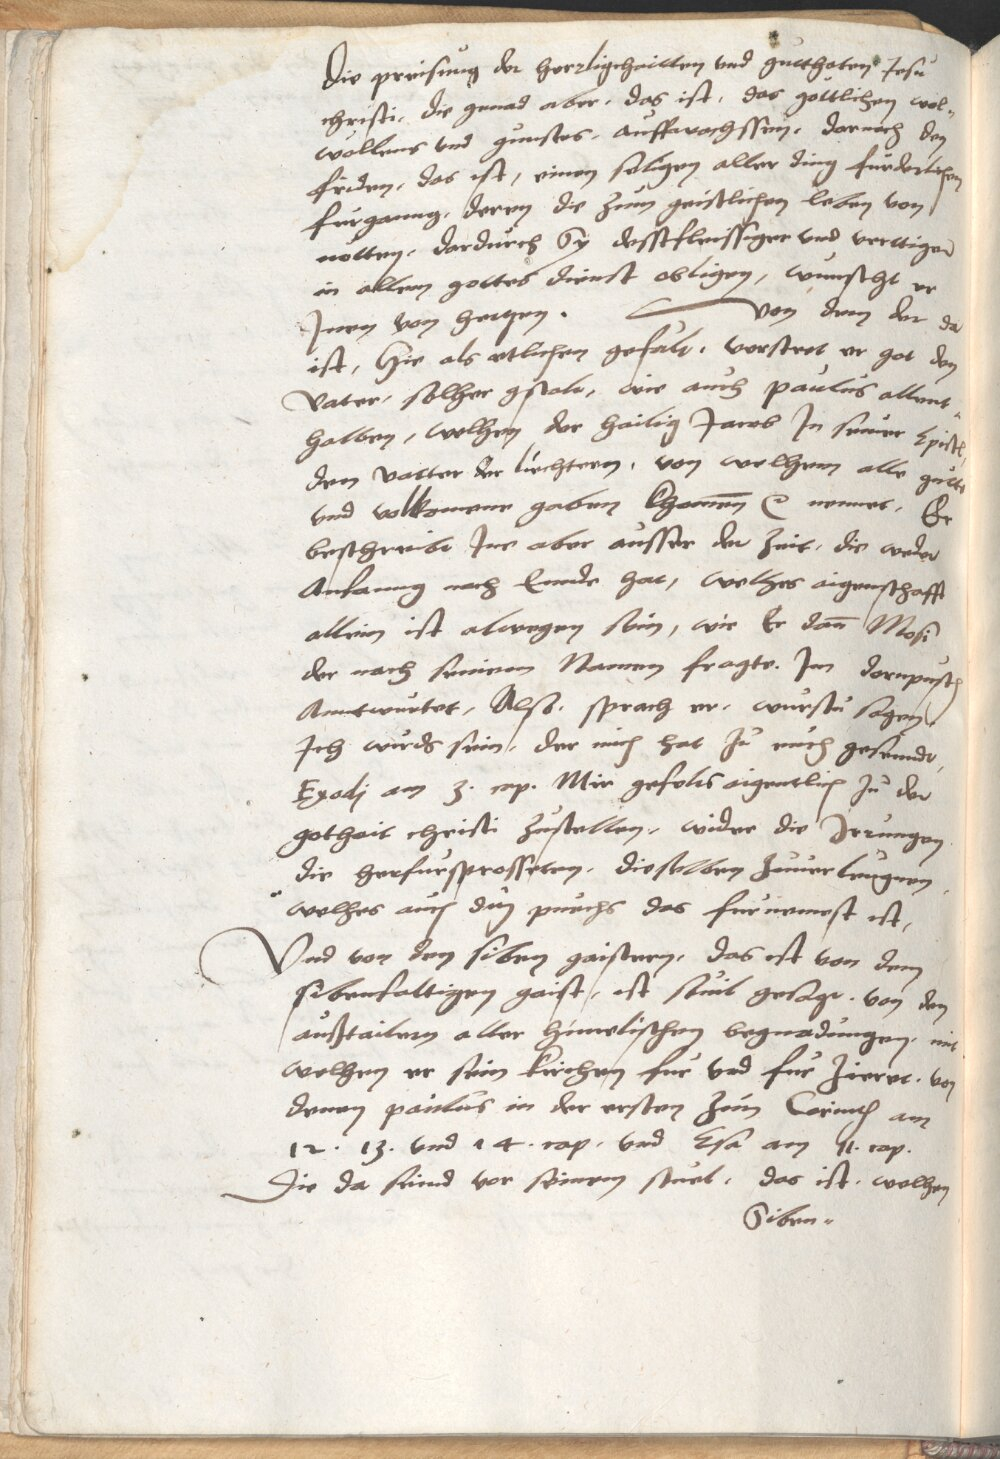 Die preisung der herrligchaitten vnd gutthaten Jesu
christi, die gnad aber, das ist, das gottlichen wol-
wollens vnd gunstes, auffwachssen, darnach den
friden, das ist, einen seligen aller ding furderlichen
furganng, deren die zum geistlichen leben von
notten, dardurch Sy dessfleissiger vnd verttiger
in allem gottes dienst obligen, wunscht er
Jnen von hertzen. Von dem der da
ist, Hie als etlichen gefalt, verstet er got den
Vater, solher gstalt, wie auch Paulus allent-
halben, welhen der hailig Jacob Jn seiner Epistl,
den vatter der liechtern, von welhem alle gutte
vnd volkomene gaben khomen &c nennet, Er
beschreibt Jne aber ausser der zeit, die weder
Anfanng nach Ennde hat, welhes aigenschafft
allein ist alwegen sein, wie Er dan Mosi
der nach seinem Namen fragte, Jm dornpusch
Anntwurtet, Also, sprach er, wurstu sagen,
Jch wurds sein, der mich hat zu euch gesenndt,
Exodj am 3. cap. Mir gefelts aigentlich zu der
gothait christi zustellen, wider die Jrrungen
die herfursprosseten, dieselben zuuerleugnen,
welhes auch diß puechs das furnemest ist,
Vnd von den siben gaistern, das ist von dem
sibenfaltigen gaist, ist souil gesagt, von den
außtailern aller himelischen begnadungen, mit
welhen er sein kirchen fur vnd fur zieret, von
denen paulus in der ersten zun Corinth am
12. 13. vnd 14. cap. vnd Esa am 11. cap.
Die da seind vor seinem stuel, das ist, welhen
Siben-